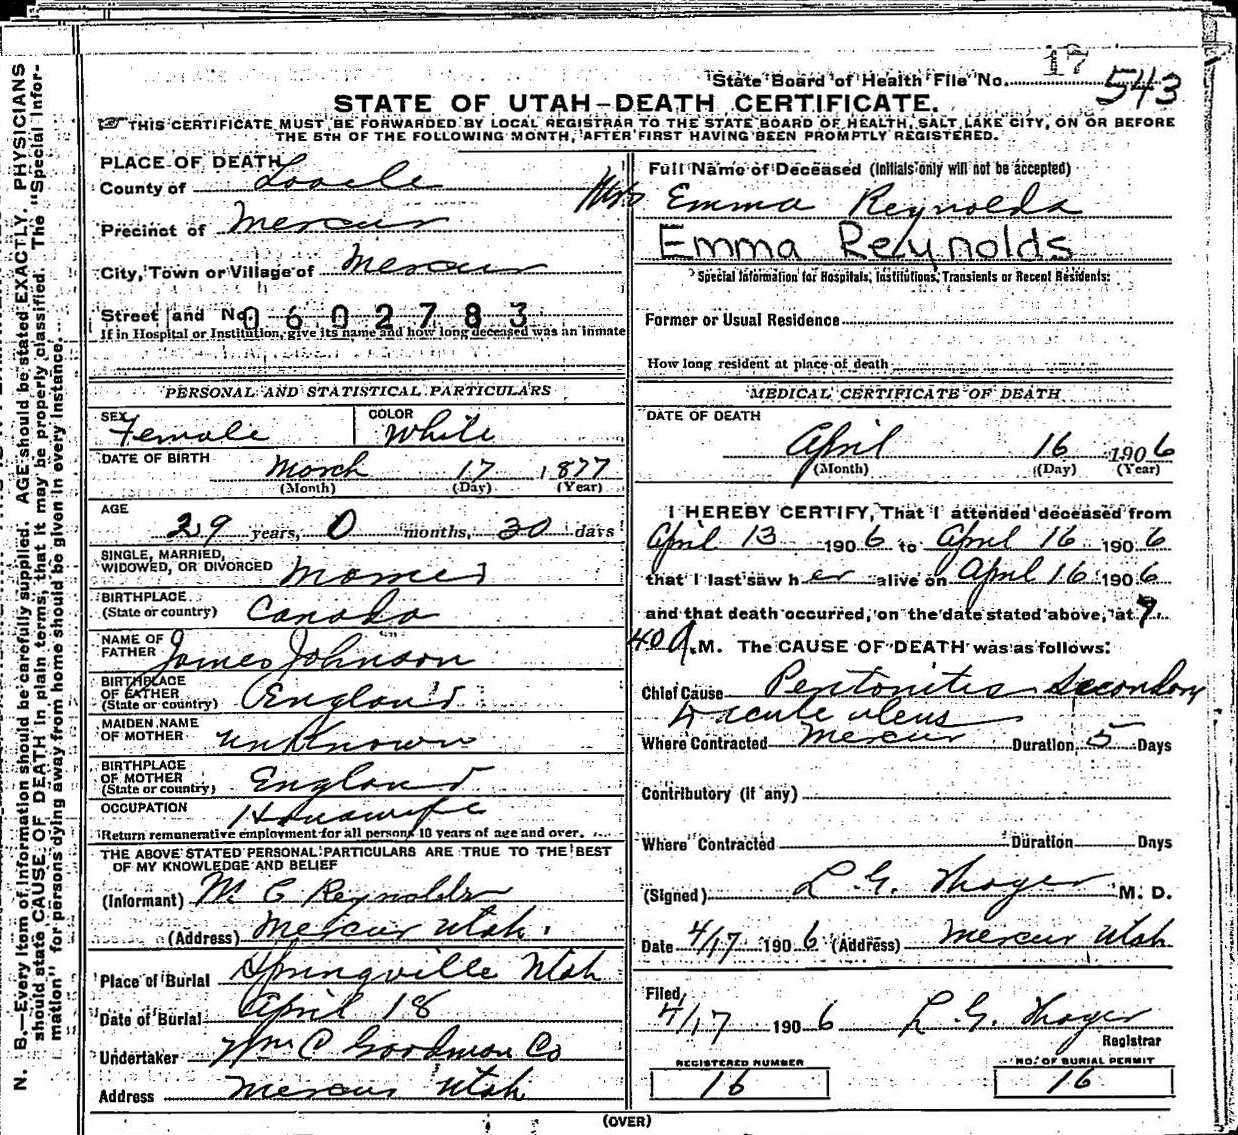 17
State Board of Health File No. 543
STATE OF UTAH-DEATH CERTIFICATE.
THIS CERTIFICATE MUST BE FORWARDED BY LOCAL REGISTRAR TO THE STATE BOARD OF HEALTH, SALT LAKE CITY, ON OR BEFORE
THE 5TH OF THE FOLLOWING MONTH, AFTER FIRST HAVING BEEN PROMPTLY REGISTERED.
PLACE OF DEATH
County of Tooele
Precinct of Mercur
City, Town or Village of Mercur
Street and No. 0602783
If in Hospital or Institution, give its name and how long deceased was an inmate
PERSONAL AND STATISTICAL PARTICULARS
SEX Female COLOR White
DATE OF BIRTH March 17 1877
(Month) (Day) (Year)
AGE
29 years, 0 months, 30 days
SINGLE, MARRIED,
WIDOWED, OR DIVORCED Married
BIRTHPLACE
(State or country) Canada
NAME OF
FATHER James Johnson
BIRTHPLACE
OF FATHER
(State or country) England
MAIDEN NAME
OF MOTHER unknown
BIRTHPLACE
OF MOTHER
(State or country) England
OCCUPATION Housewife
Return remunerative employment for all persons 10 years of age and over.
THE ABOVE STATED PERSONAL PARTICULARS ARE TRUE TO THE BEST
OF MY KNOWLEDGE AND BELIEF
(Informant) W. C Reynolds
(Address) Mercur Utah.
Place of Burial Springville Utah
Date of Burial April 18
Undertaker Wm C Goodman Co
Address Mercur Utah
Full Name of Deceased (Initials only will not be accepted)
Mrs Emma Reynolds
Emma Reynolds
Special Information for Hospitals, Institutions, Transients or Recent Residents:
Former or Usual Residence
How long resident at place of death
MEDICAL CERTIFICATE OF DEATH
DATE OF DEATH
April 16 1906
(Month) (Day) (Year)
I HEREBY CERTIFY, That I attended deceased from
April 13 1906 to April 16 1906
that I last saw her alive on April 16 1906
and that death occurred, on the date stated above, at 9
40 A.M. The CAUSE OF DEATH was as follows:
Chief Cause Peritonitis Secondary
to acute ulcus
Where Contracted Mercur Duration 5 Days
Contributory (if any)
Where Contracted Duration Days
(Signed) L.G. Thayer M. D.
Date 4/17 1906 (Address) Mercur Utah
Filed
4/17 1906 L G. Thayer
Registrar
REGISTERED NUMBER
16
NO. OF BURIAL PERMIT
16
(OVER)
N. B.—Every item of information should be carefully supplied. AGE should be stated EXACTLY. PHYSICIANS
should state CAUSE OF DEATH in plain terms, that it may be properly classified. The "Special Infor-
mation" for persons dying away from home should be given in every instance.